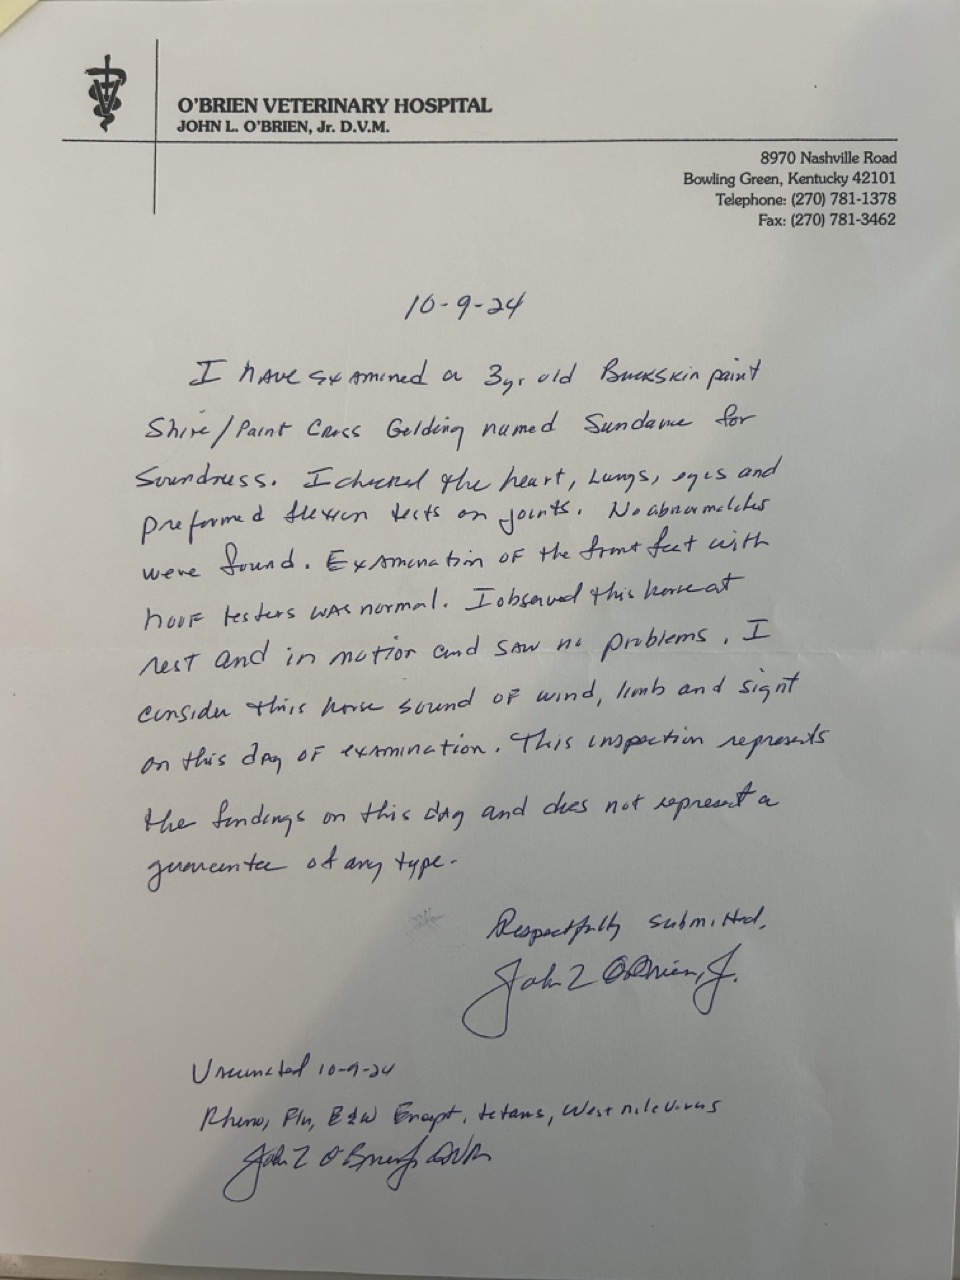 O'BRIEN VETERINARY HOSPITAL
JOHN L. O'BRIEN, Jr. D.V.M.
8970 Nashville Road
Bowling Green, Kentucky 42101
Telephone: (270) 781-1378
Fax: (270) 781-3462
10-9-24
I have examined a 3yr old Buckskin paint
Shire/Paint Cross Gelding named Sundance for
Soundness. I checked the heart, Lungs, eyes and
preformed flexion tests on joints. No abnormalities
were found. Examination of the front feet with
hoof testers was normal. I observed this horse at
rest and in motion and saw no problems. I
consider this horse sound of wind, limb and sight
on this day of examination. This inspection represents
the findings on this day and does not represent a
guarantee of any type.
Respectfully submitted,
John L O'Brien, Jr.
Vaccinated 10-9-24
Rhino, Flu, E&W Encept, tetans, West nile Virus
John L O'Brien Jr DVM